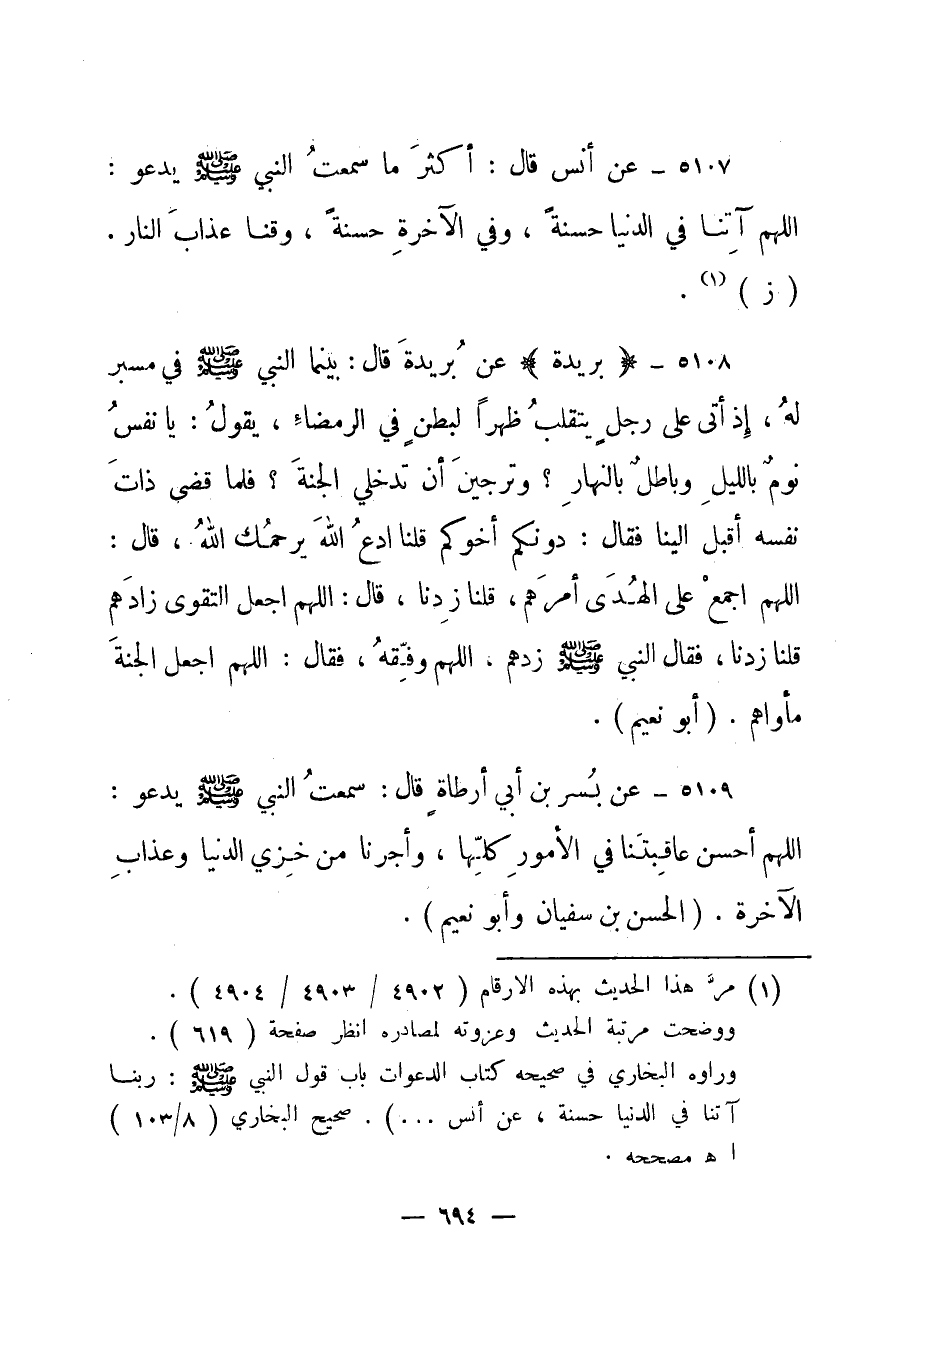 ٥١٠٧ ـ عن أنس قال : أكثرَ ما سمعتُ النبي ﷺ يدعو :
اللهم آتِنـا في الدنيا حسنةً ، وفي الآخرةِ حسنةً ، وقنـا عذابَ النار .
( ز ) (١) .
٥١٠٨ ـ ﴿ بريدة ﴾ عن بُريدةَ قال : بينما النبي ﷺ في مسير
لهُ ، إذ أتى على رجلٍ يتقلبُ ظهراً لبطنٍ في الرمضاءِ ، يقولُ : يا نفسُ
نومٌ بالليلِ وباطلٌ بالنهارِ ؟ وترجينَ أن تدخلي الجنةَ ؟ فلما قضى ذاتَ
نفسه أقبل الينا فقال : دونكم أخوكم قلنا ادعُ اللهَ يرحمُك اللهُ ، قال :
اللهم اجمعْ على الهُدَى أمرَهم ، قلنا زِدنا ، قال : اللهم اجعل التقوى زادَهم
قلنا زدنا ، فقال النبي ﷺ زدهم ، اللهم وفِّقهُ ، فقال : اللهم اجعل الجنةَ
مأواهم . ( أبو نعيم ) .
٥١٠٩ ـ عن بُسر بن أبي أرطاةٍ قال : سمعتُ النبي ﷺ يدعو :
اللهم أحسن عاقِبتَنا في الأمورِ كلِّها ، وأجرنا من خِزي الدنيا وعذابِ
الآخرة . ( الحسن بن سفيان وأبو نعيم ) .
(١) مرَّ هذا الحديث بهذه الارقام ( ٤٩٠٢ / ٤٩٠٣ / ٤٩٠٤ ) .
ووضحت مرتبة الحديث وعزوته لمصادره انظر صفحة ( ٦١٩ ) .
وراوه البخاري في صحيحه كتاب الدعوات باب قول النبي ﷺ : ربنـا
آتنا في الدنيا حسنة ، عن أنس ... ) . صحيح البخاري ( ١٠٣/٨ )
ا ه مصححه .
— ٦٩٤ —